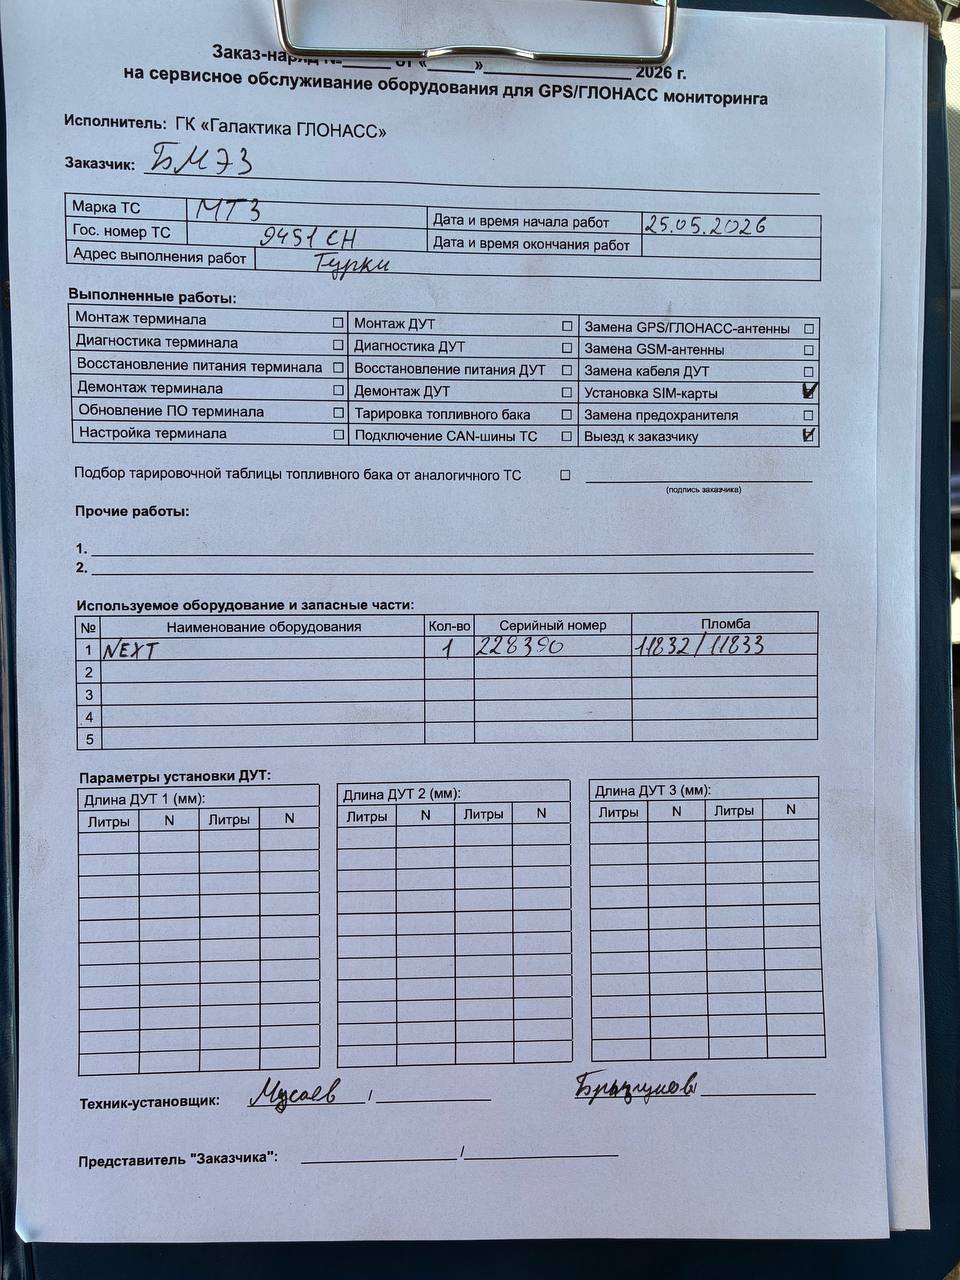 Заказ-наряд №_____ от «_____»_______________ 2026 г.
на сервисное обслуживание оборудования для GPS/ГЛОНАСС мониторинга
Исполнитель: ГК «Галактика ГЛОНАСС»
Заказчик: БМЭЗ
Марка ТС МТЗ Дата и время начала работ 25.05.2026
Гос. номер ТС 9451 СН Дата и время окончания работ
Адрес выполнения работ Турки
Выполненные работы:
Монтаж терминала ☐ Монтаж ДУТ ☐ Замена GPS/ГЛОНАСС-антенны ☐
Диагностика терминала ☐ Диагностика ДУТ ☐ Замена GSM-антенны ☐
Восстановление питания терминала ☐ Восстановление питания ДУТ ☐ Замена кабеля ДУТ ☐
Демонтаж терминала ☐ Демонтаж ДУТ ☐ Установка SIM-карты ☑
Обновление ПО терминала ☐ Тарировка топливного бака ☐ Замена предохранителя ☐
Настройка терминала ☐ Подключение CAN-шины ТС ☐ Выезд к заказчику ☑
Подбор тарировочной таблицы топливного бака от аналогичного ТС ☐
(подпись заказчика)
Прочие работы:
1.
2.
Используемое оборудование и запасные части:
№ Наименование оборудования Кол-во Серийный номер Пломба
1 NEXT 1 228390 11832/11833
2
3
4
5
Параметры установки ДУТ:
Длина ДУТ 1 (мм): Длина ДУТ 2 (мм): Длина ДУТ 3 (мм):
Литры N Литры N Литры N Литры N Литры N Литры N
Техник-установщик: Мусаев /
Представитель "Заказчика": /